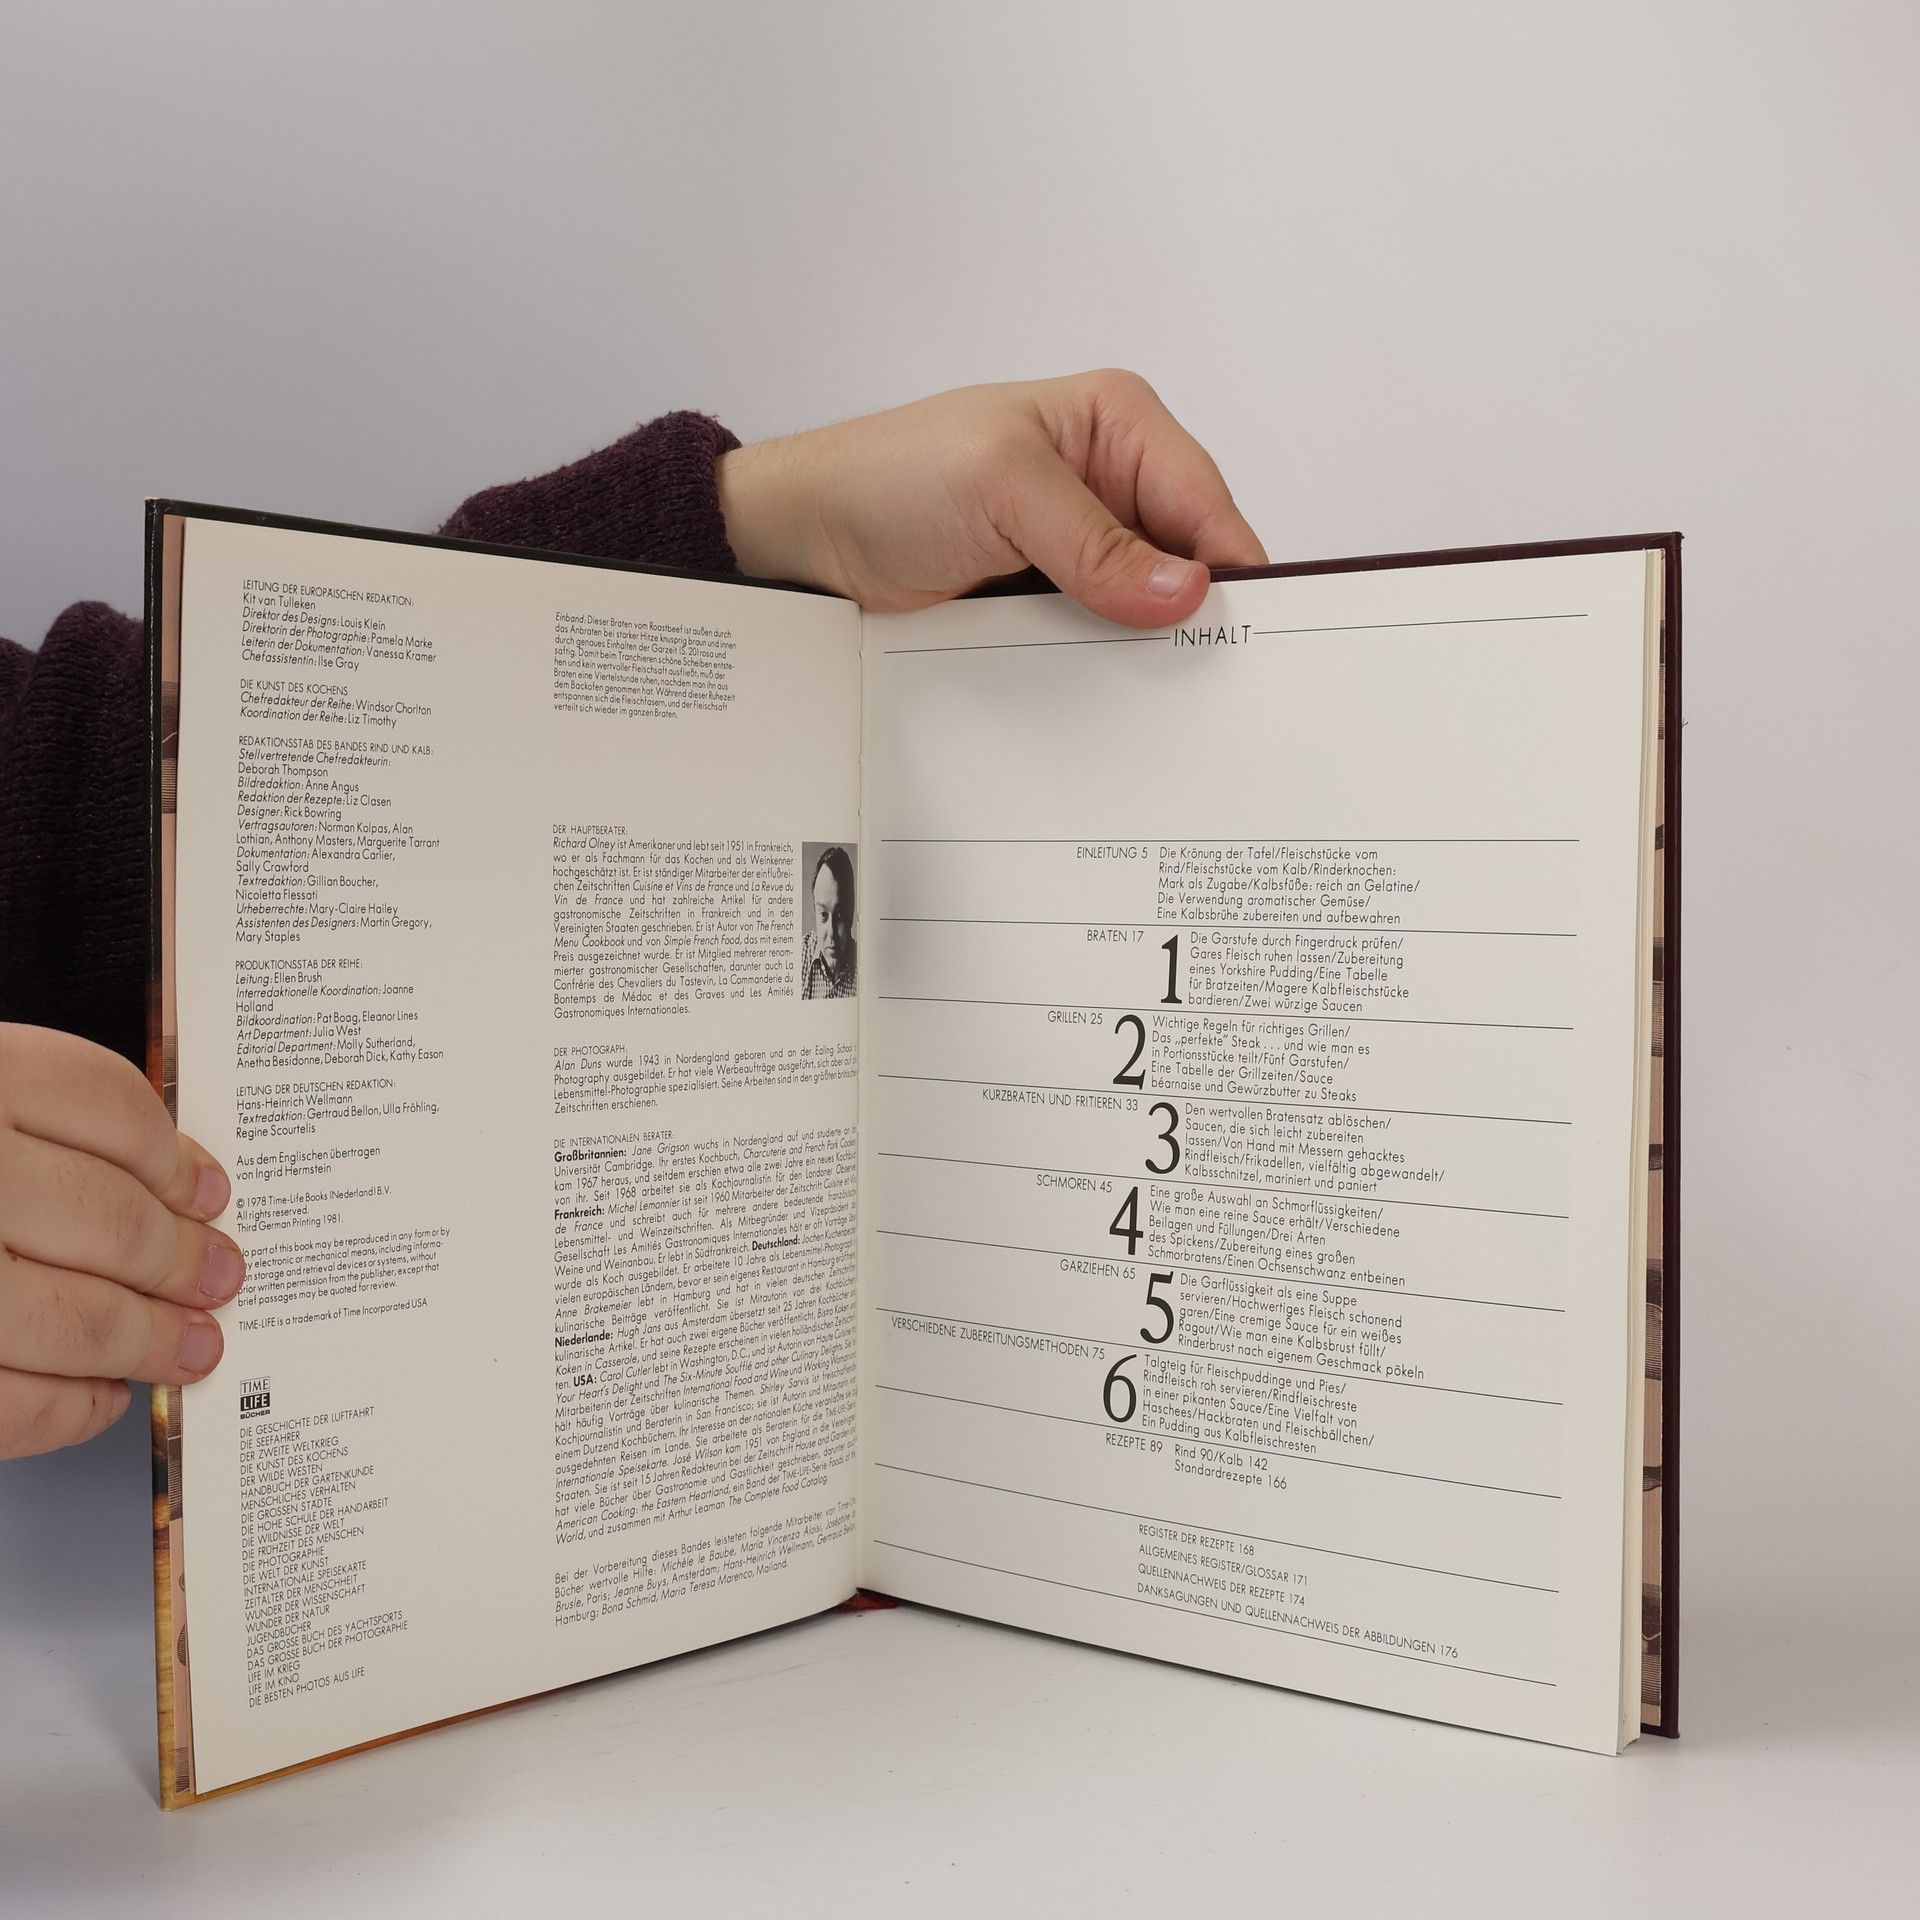 LEITUNG DER EUROPÄISCHEN REDAKTION:
Kit van Tulleken
Direktor des Designs: Louis Klein
Direktorin der Photographie: Pamela Marke
Leiterin der Dokumentation: Vanessa Kramer
Chefassistentin: Ilse Gray
DIE KUNST DES KOCHENS
Chefredakteur der Reihe: Windsor Chorlton
Koordination der Reihe: Liz Timothy
REDAKTIONSSTAB DES BANDES RIND UND KALB:
Stellvertretende Chefredakteurin:
Deborah Thompson
Bildredaktion: Anne Angus
Redaktion der Rezepte: Liz Clasen
Designer: Rick Bowring
Vertragsautoren: Norman Kolpas, Alan
Lothian, Anthony Masters, Marguerite Tarrant
Dokumentation: Alexandra Carlier,
Sally Crawford
Textredaktion: Gillian Boucher,
Nicoletta Flessati
Urheberrechte: Mary-Claire Hailey
Assistenten des Designers: Martin Gregory,
Mary Staples
PRODUKTIONSSTAB DER REIHE:
Leitung: Ellen Brush
Interredaktionelle Koordination: Joanne
Holland
Bildkoordination: Pat Boag, Eleanor Lines
Art Department: Julia West
Editorial Department: Molly Sutherland,
Anetha Besidonne, Deborah Dick, Kathy Eason
LEITUNG DER DEUTSCHEN REDAKTION:
Hans-Heinrich Wellmann
Textredaktion: Gertraud Bellon, Ulla Fröhling,
Regine Scourtelis
Aus dem Englischen übertragen
von Ingrid Hermstein
© 1978 Time-Life Books (Nederland) B.V.
All rights reserved.
Third German Printing 1981.
No part of this book may be reproduced in any form or by
any electronic or mechanical means, including informa-
on storage and retrieval devices or systems, without
prior written permission from the publisher, except that
brief passages may be quoted for review.
TIME-LIFE is a trademark of Time Incorporated USA
TIME
LIFE
BÜCHER
DIE GESCHICHTE DER LUFTFAHRT
DIE SEEFAHRER
DER ZWEITE WELTKRIEG
DIE KUNST DES KOCHENS
DER WILDE WESTEN
HANDBUCH DER GARTENKUNDE
MENSCHLICHES VERHALTEN
DIE GROSSEN STÄDTE
DIE HOHE SCHULE DER HANDARBEIT
DIE WILDNISSE DER WELT
DIE FRÜHZEIT DES MENSCHEN
DIE PHOTOGRAPHIE
DIE WELT DER KUNST
INTERNATIONALE SPEISEKARTE
ZEITALTER DER MENSCHHEIT
WUNDER DER WISSENSCHAFT
WUNDER DER NATUR
JUGENDBÜCHER
DAS GROSSE BUCH DES YACHTSPORTS
DAS GROSSE BUCH DER PHOTOGRAPHIE
LIFE IM KRIEG
LIFE IM KINO
DIE BESTEN PHOTOS AUS LIFE
Einband: Dieser Braten vom Roastbeef ist außen durch
das Anbraten bei starker Hitze knusprig braun und innen
durch genaues Einhalten der Garzeit (S. 20) rosa und
saftig. Damit beim Tranchieren schöne Scheiben entste-
hen und kein wertvoller Fleischsaft ausfließt, muß der
Braten eine Viertelstunde ruhen, nachdem man ihn aus
dem Backofen genommen hat. Während dieser Ruhezeit
entspannen sich die Fleischfasern, und der Fleischsaft
verteilt sich wieder im ganzen Braten.
DER HAUPTBERATER:
Richard Olney ist Amerikaner und lebt seit 1951 in Frankreich,
wo er als Fachmann für das Kochen und als Weinkenner
hochgeschätzt ist. Er ist ständiger Mitarbeiter der einflußrei-
chen Zeitschriften Cuisine et Vins de France und La Revue du
Vin de France und hat zahlreiche Artikel für andere
gastronomische Zeitschriften in Frankreich und in den
Vereinigten Staaten geschrieben. Er ist Autor von The French
Menu Cookbook und von Simple French Food, das mit einem
Preis ausgezeichnet wurde. Er ist Mitglied mehrerer renom-
mierter gastronomischer Gesellschaften, darunter auch La
Confrérie des Chevaliers du Tastevin, La Commanderie du
Bontemps de Médoc et des Graves und Les Amitiés
Gastronomiques Internationales.
DER PHOTOGRAPH:
Alan Duns wurde 1943 in Nordengland geboren und an der Ealing School
Photography ausgebildet. Er hat viele Werbeaufträge ausgeführt, sich aber auf
Lebensmittel-Photographie spezialisiert. Seine Arbeiten sind in den größten britischen
Zeitschriften erschienen.
DIE INTERNATIONALEN BERATER:
Großbritannien: Jane Grigson wuchs in Nordengland auf und studierte an
Universität Cambridge. Ihr erstes Kochbuch, Charcuterie and French Pork Cookery
kam 1967 heraus, und seitdem erschien etwa alle zwei Jahre ein neues Kochbuch
von ihr. Seit 1968 arbeitet sie als Kochjournalistin für den Londoner Observer
Frankreich: Michel Lemonnier ist seit 1960 Mitarbeiter der Zeitschrift Cuisine et Vins
de France und schreibt auch für mehrere andere bedeutende französische
Lebensmittel- und Weinzeitschriften. Als Mitbegründer und Vizepräsident
Gesellschaft Les Amitiés Gastronomiques Internationales hält er oft Vorträge über
Weine und Weinanbau. Er lebt in Südfrankreich. Deutschland: Jochen Kuchenbecker
wurde als Koch ausgebildet. Er arbeitete 10 Jahre als Lebensmittel-Photograph
vielen europäischen Ländern, bevor er sein eigenes Restaurant in Hamburg eröffnete
Anne Brakemeier lebt in Hamburg und hat in vielen deutschen Zeitschriften
kulinarische Beiträge veröffentlicht. Sie ist Mitautorin von drei Kochbüchern
Niederlande: Hugh Jans aus Amsterdam übersetzt seit 25 Jahren Kochbücher und
kulinarische Artikel. Er hat auch zwei eigene Bücher veröffentlicht, Bistro Koken und
Koken in Casserole, und seine Rezepte erscheinen in vielen holländischen Zeitschriften
ten. USA: Carol Cutler lebt in Washington, D.C., und ist Autorin von Haute Cuisine for
Your Heart's Delight und The Six-Minute Soufflé and other Culinary Delights. Sie ist
Mitarbeiterin der Zeitschriften International Food and Wine und Working Woman und
hält häufig Vorträge über kulinarische Themen. Shirley Sarvis ist freischaffende
Kochjournalistin und Beraterin in San Francisco; sie ist Autorin und Mitautorin von
einem Dutzend Kochbüchern. Ihr Interesse an der nationalen Küche veranlaßte sie zu
ausgedehnten Reisen im Lande. Sie arbeitete als Beraterin für die TIME-LIFE-Serie
Internationale Speisekarte. José Wilson kam 1951 von England in die Vereinigten
Staaten. Sie ist seit 15 Jahren Redakteurin bei der Zeitschrift House and Garden und
hat viele Bücher über Gastronomie und Gastlichkeit geschrieben, darunter auch
American Cooking: the Eastern Heartland, ein Band der TIME-LIFE-Serie Foods of the
World, und zusammen mit Arthur Leaman The Complete Food Catalog.
Bei der Vorbereitung dieses Bandes leisteten folgende Mitarbeiter von Time-Life
Bücher wertvolle Hilfe: Michèle le Baube, Maria Vincenza Aloisi, Joséphine
Brusle, Paris; Jeanne Buys, Amsterdam; Hans-Heinrich Wellmann, Gertraud Bellon,
Hamburg; Bona Schmid, Maria Teresa Marenco, Mailand.
INHALT
EINLEITUNG 5 Die Krönung der Tafel/Fleischstücke vom
Rind/Fleischstücke vom Kalb/Rinderknochen:
Mark als Zugabe/Kalbsfüße: reich an Gelatine/
Die Verwendung aromatischer Gemüse/
Eine Kalbsbrühe zubereiten und aufbewahren
BRATEN 17 1 Die Garstufe durch Fingerdruck prüfen/
Gares Fleisch ruhen lassen/Zubereitung
eines Yorkshire Pudding/Eine Tabelle
für Bratzeiten/Magere Kalbfleischstücke
bardieren/Zwei würzige Saucen
GRILLEN 25 2 Wichtige Regeln für richtiges Grillen/
Das „perfekte“ Steak . . . und wie man es
in Portionsstücke teilt/Fünf Garstufen/
Eine Tabelle der Grillzeiten/Sauce
béarnaise und Gewürzbutter zu Steaks
KURZBRATEN UND FRITIEREN 33 3 Den wertvollen Bratensatz ablöschen/
Saucen, die sich leicht zubereiten
lassen/Von Hand mit Messern gehacktes
Rindfleisch/Frikadellen, vielfältig abgewandelt/
Kalbsschnitzel, mariniert und paniert
SCHMOREN 45 4 Eine große Auswahl an Schmorflüssigkeiten/
Wie man eine reine Sauce erhält/Verschiedene
Beilagen und Füllungen/Drei Arten
des Spickens/Zubereitung eines großen
Schmorbratens/Einen Ochsenschwanz entbeinen
GARZIEHEN 65 5 Die Garflüssigkeit als eine Suppe
servieren/Hochwertiges Fleisch schonend
garen/Eine cremige Sauce für ein weißes
Ragout/Wie man eine Kalbsbrust füllt/
Rinderbrust nach eigenem Geschmack pökeln
VERSCHIEDENE ZUBEREITUNGSMETHODEN 75 6 Talgteig für Fleischpuddinge und Pies/
Rindfleisch roh servieren/Rindfleischreste
in einer pikanten Sauce/Eine Vielfalt von
Haschees/Hackbraten und Fleischbällchen/
Ein Pudding aus Kalbfleischresten
REZEPTE 89 Rind 90/Kalb 142
Standardrezepte 166
REGISTER DER REZEPTE 168
ALLGEMEINES REGISTER/GLOSSAR 171
QUELLENNACHWEIS DER REZEPTE 174
DANKSAGUNGEN UND QUELLENNACHWEIS DER ABBILDUNGEN 176